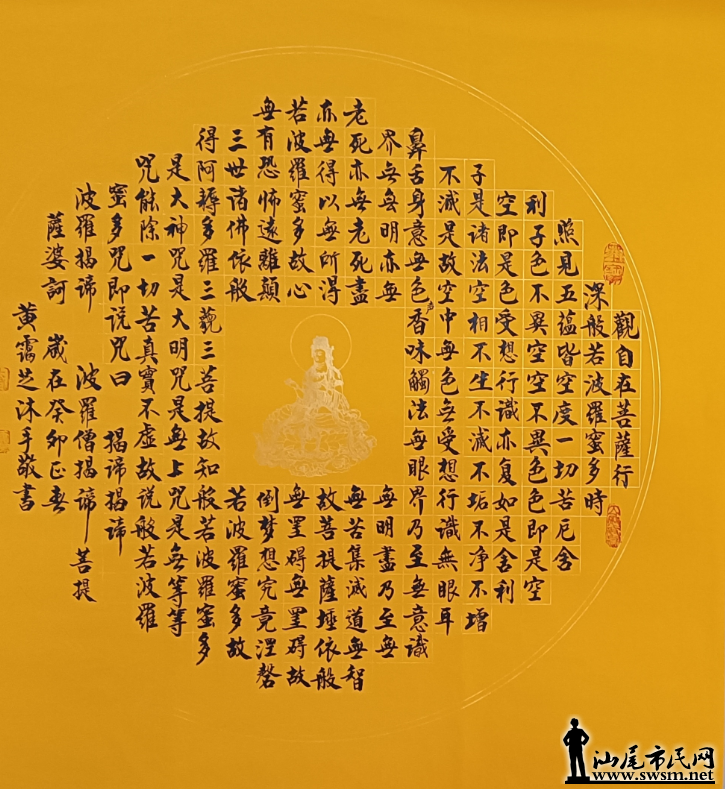 觀自在菩薩行
深般若波羅蜜多時
照見五蘊皆空度一切苦厄舍
利子色不異空空不異色色即是空
空即是色受想行識亦复如是舍利
子是诸法空相不生不滅不垢不净不增
不減是故空中無色無受想行識無眼耳
鼻舌身意無色声香味觸法無眼界乃至無意識
界無無明亦無無明盡乃至無
老死亦無老死盡無苦集滅道無智
亦無得以無所得故菩提薩埵依般
若波羅蜜多故心無罣碍無罣碍故
無有恐怖遠離顛倒梦想究竟涅磐
三世诸佛依般若波羅蜜多故
得阿耨多羅三藐三菩提故知般若波羅蜜多
是大神咒是大明咒是無上咒是無等等
咒能除一切苦真實不虚故说般若波羅
蜜多咒即说咒曰 揭諦揭諦
波羅揭諦 波羅僧揭諦 菩提
薩婆訶 歲在癸卯正春
黄靄芝沐手敬書
汕尾市民网
www.swsm.net